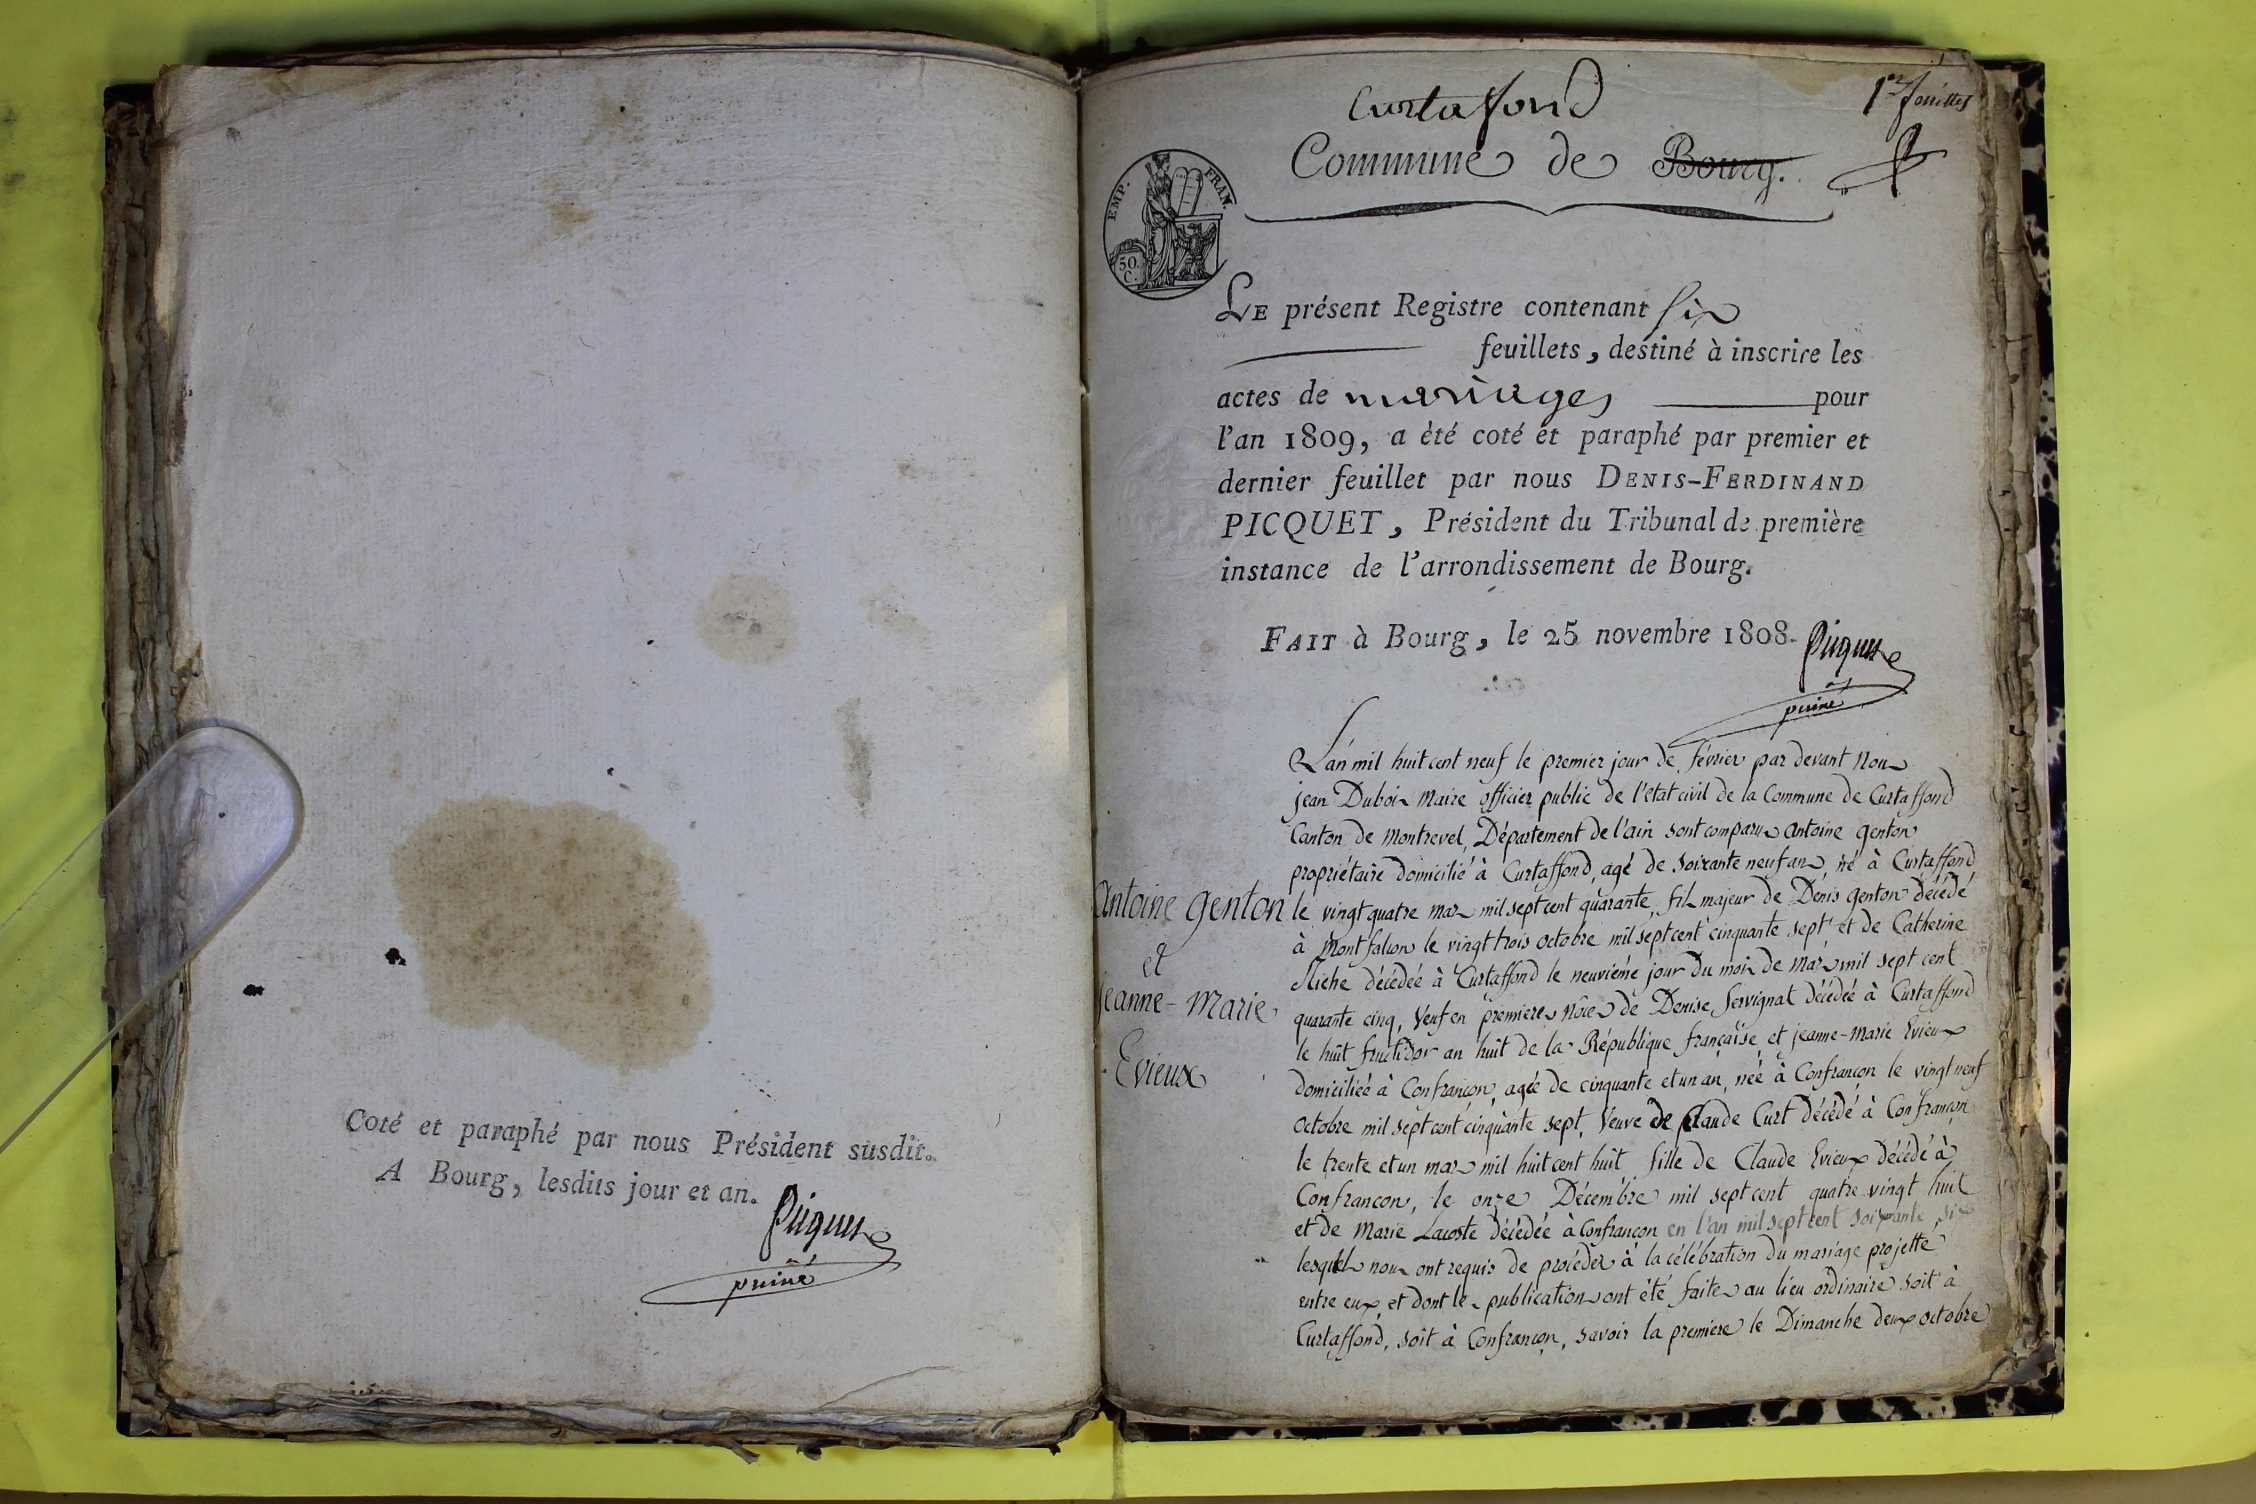 Coté et paraphé par nous Président susdit.
A Bourg, lesdits jour et an.
Picquet
puiné
1er feuillet
Curtaffond
Commune de Bourg.
EMP. FRAN.
50.
C.
LE présent Registre contenant six
feuillets, destiné à inscrire les
actes de mariages pour
l'an 1809, a été coté et paraphé par premier et
dernier feuillet par nous DENIS-FERDINAND
PICQUET, Président du Tribunal de première
instance de l'arrondissement de Bourg.
FAIT à Bourg, le 25 novembre 1808.
Picquet
puiné
Antoine Genton
et
jeanne-Marie
Evieux
L'an mil huit cent neuf le premier jour de février par devant Nous
jean Dubois Maire officier public de l'état civil de la Commune de Curtaffond
Canton de Montrevel, Département de l'ain sont comparus antoine genton
propriétaire domicilié à Curtaffond, agé de soixante neuf ans, né à Curtaffond
le vingt quatre mars mil sept cent quarante, fils majeur de Denis genton décédé
à Montfalcon le vingt trois octobre mil sept cent cinquante sept et de Catherine
décédée à Curtaffond le neuvième jour du mois de Mars mil sept cent
quarante cinq, Veuf en premieres Nôces de Denise Servignat décédée à Curtaffond
le huit fructidor an huit de la République française, et jeanne-marie Evieux
domiciliée à Confrançon, agée de cinquante et un an, née à Confrançon le vingt neuf
octobre mil sept cent cinquante sept, Veuve de Claude Curt décédé à Confrançon
le trente et un mars mil huit cent huit, fille de Claude Evieux décédé à
Confrancon, le onze Décembre mil sept cent quatre vingt huit
et de Marie Lacoste décédée à Confrançon en l'an mil sept cent soixante six
lesquels nous ont requis de procéder à la célébration du mariage projetté
entre eux, et dont les publications ont été faites au lieu ordinaire soit à
Curtaffond, soit à Confrançon, savoir la premiere le Dimanche deux octobre